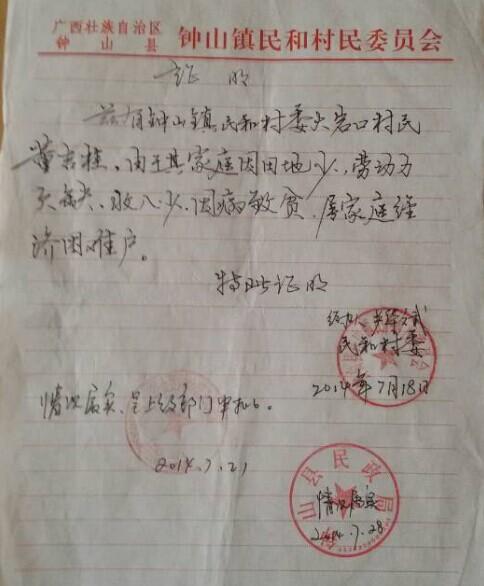 广西壮族自治区
钟山县 钟山镇民和村民委员会
证明
兹有钟山镇民和村委大岩口村民
董吉桂、由于其家庭因田地少、劳动力
缺、收入少、因病致贫、属家庭经
济困难户。
特此证明
经办人
民和村委
2014年7月18日
情况属实、呈上级部门审批。
2014.7.21
钟山县民政局
情况属实
2014.7.28